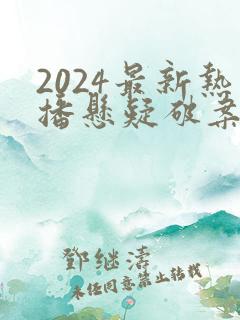 2024最新熱
播懸疑破案
鄧继濤
未经同意禁止转载